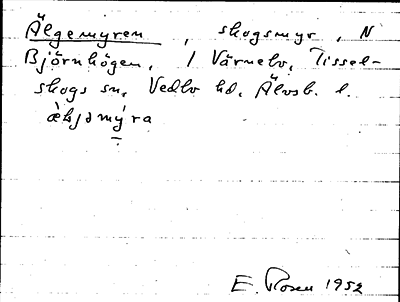 Älgemyren, skogsmyr, N
Björnhögen, / Värnebo, Tissel-
skogs sn, Vedbo hd, Älvsb. l.
æ̀ljəmy̆ra
E. Rosen 1952